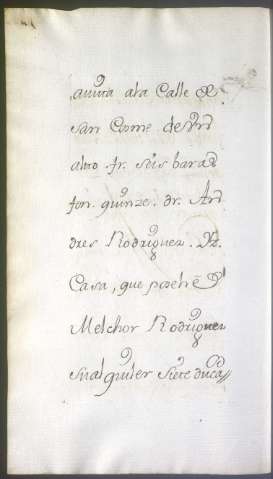 arrima ala Calle de
san Cosme de Un
alto. fr. seis baras
fon. quinze. dr. An
dres Rodriguez. Dr.
Casa, que poehe Dⁿ
Melchor Rodriguez
su alquiler siete duca//